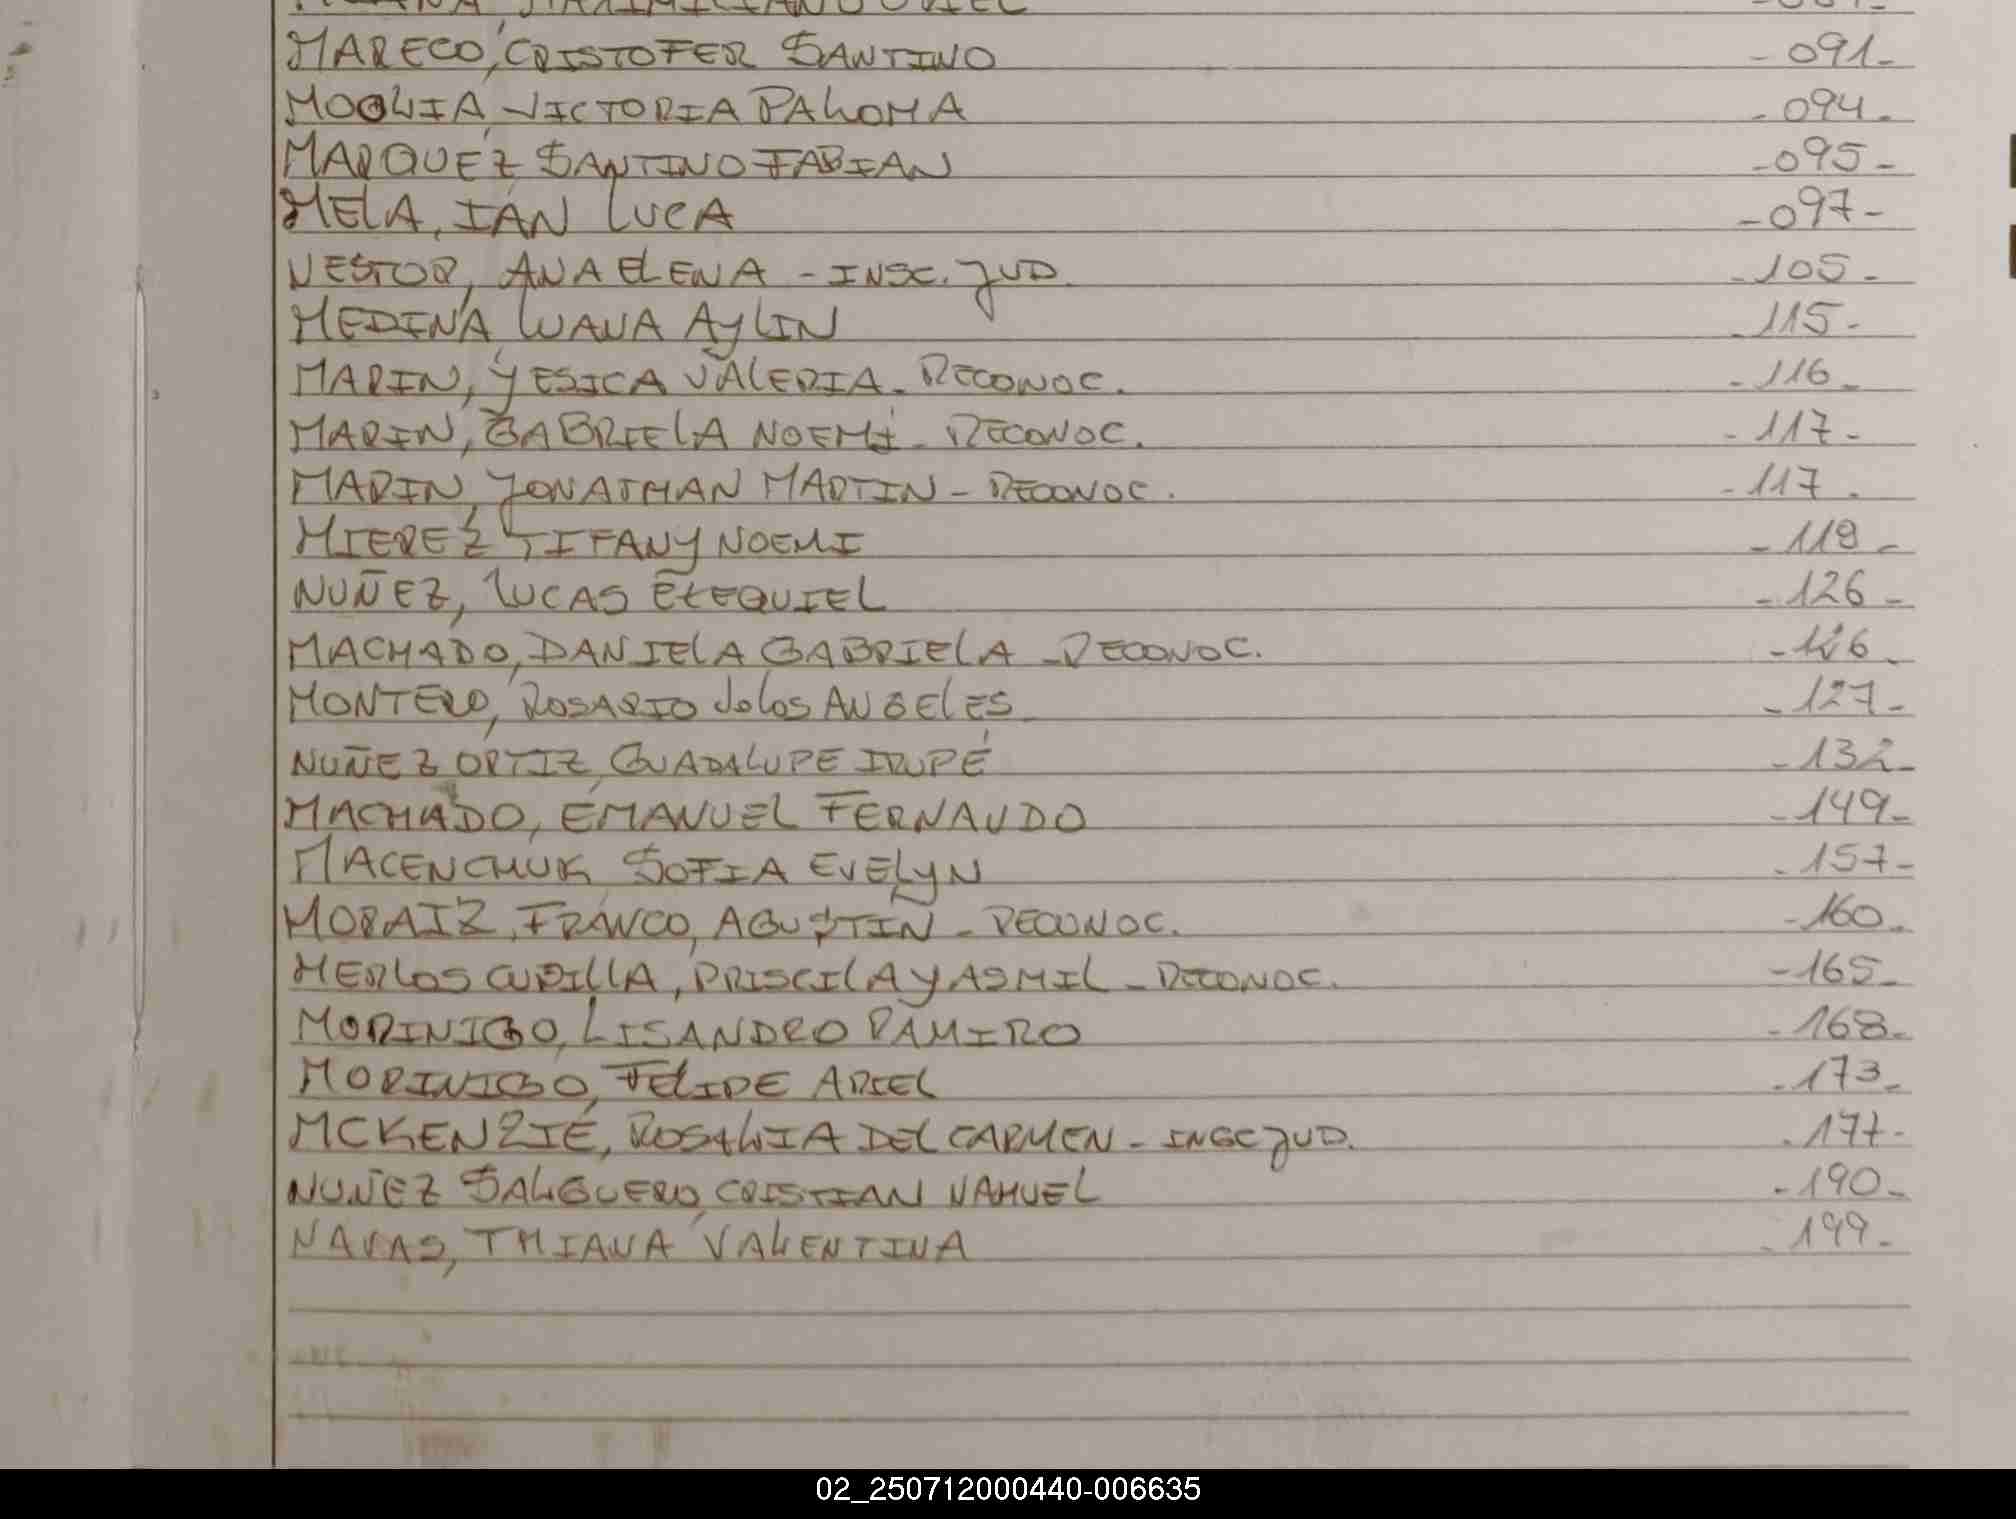 MARECO, CRISTOFER SANTINO - 091-
MOGLIA, VICTORIA PALOMA - 094 -
MARQUEZ SANTINO FABIAN - 095 -
MELA, IAN LUCA - 097 -
NESTOR, ANA ELENA - INSC. JUD. - 105 -
MEDINA, LUANA AYLIN - 115 -
MARIN, YESICA VALERIA - RECONOC. - 116 -
MARIN, GABRIELA NOEMÍ - RECONOC. - 117 -
MARIN, JONATHAN MARTIN - RECONOC. - 117 -
MIEREZ, TIFANY NOEMI - 119 -
NUÑEZ, LUCAS EZEQUIEL - 126 -
MACHADO, DANIELA GABRIELA - RECONOC. - 126 -
MONTERO, ROSARIO de los ANGELES - 127 -
NUÑEZ ORTIZ, GUADALUPE IRUPÉ - 132 -
MACHADO, EMANUEL FERNANDO - 149 -
MACENCHUK SOFIA EVELYN - 157 -
MORAIZ, FRANCO, AGUSTIN - RECONOC. - 160 -
MERLOS CUBILLA, PRISCILA YASMIL - RECONOC. - 165 -
MORINIGO, LISANDRO RAMIRO - 168 -
MORINIGO, FELIPE ARIEL - 173 -
MCKENZIE, ROSALIA DEL CARMEN - INSC JUD. - 177 -
NUÑEZ SALGUERO, CRISTIAN NAHUEL - 190 -
NAVAS, THIANA VALENTINA - 199 -
02_250712000440-006635